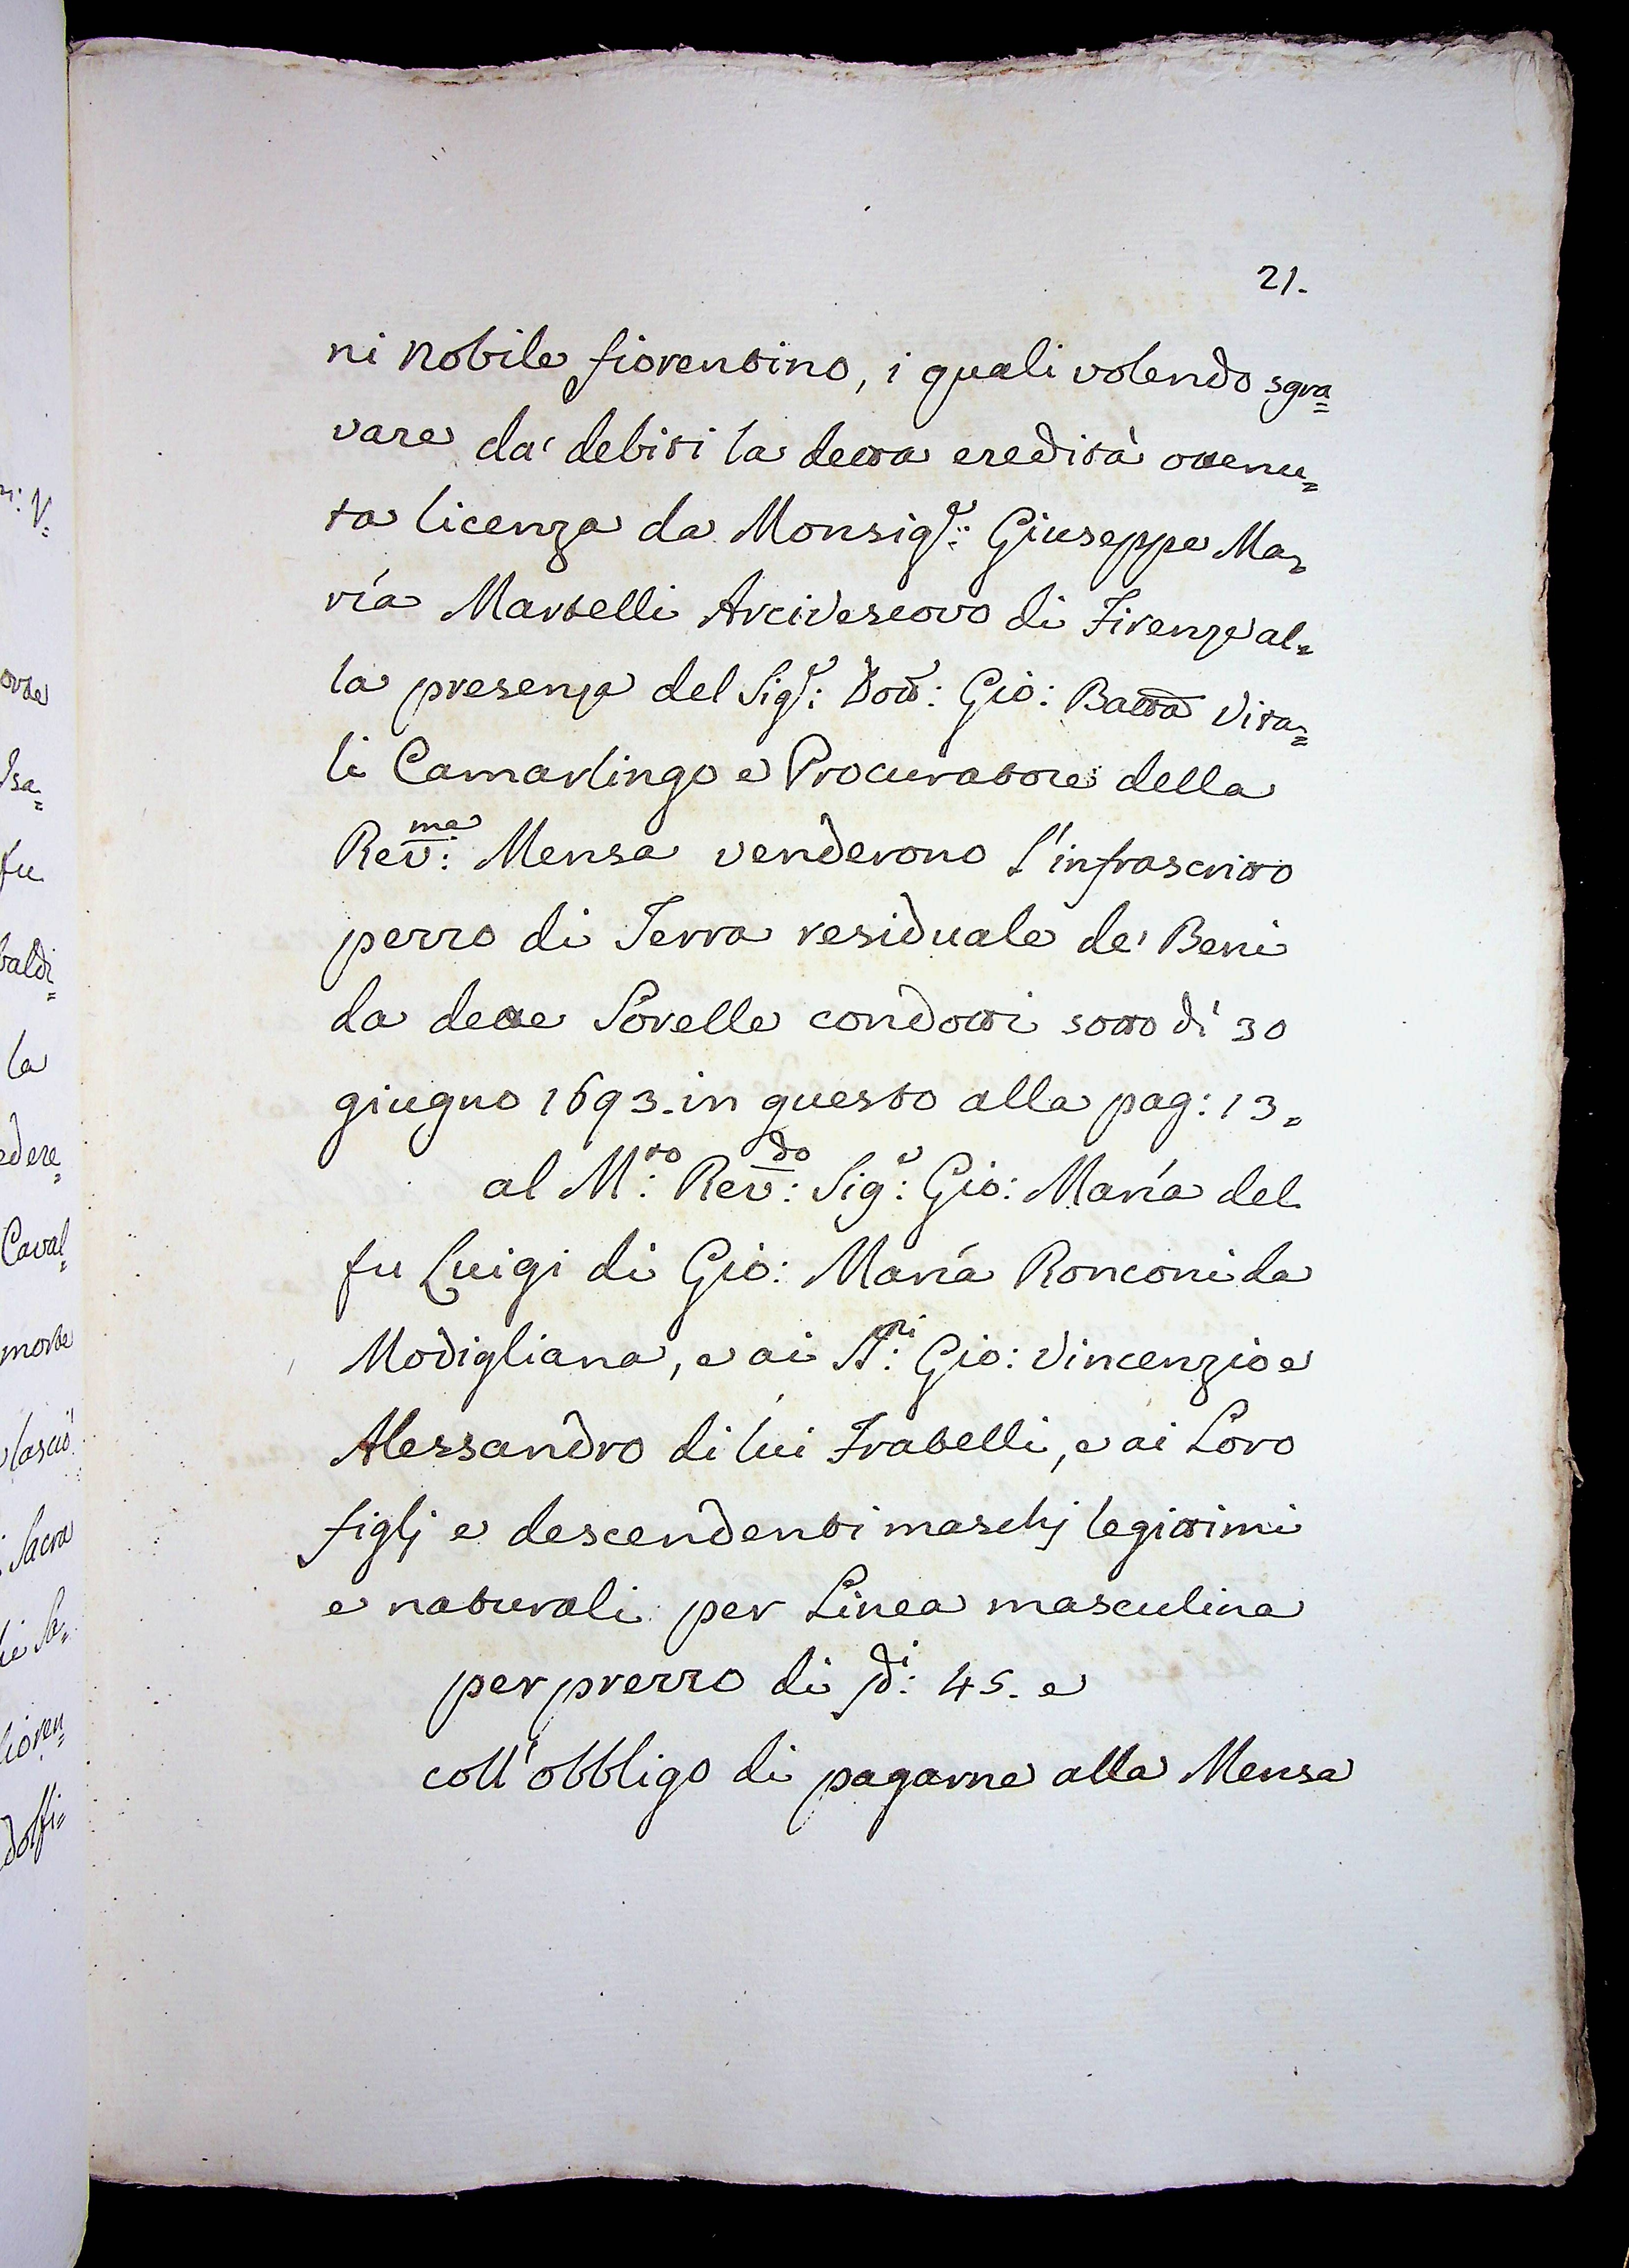 21.
ni Nobile fiorentino, i quali volendo sgra=
vare da' debiti la detta eredità ottenu=
ta licenza da Monsig.r: Giuseppe Ma=
ria Martelli Arcivescovo di Firenze al=
la presenza del Sig.r: Dott.r: Gio: Batta Vita=
li Camarlingo e Procuratore della
Rev:ma Mensa venderono l'infrascritto
pezzo di Terra residuale de' Beni
da dette Sorelle condotti sotto dì 30
giugno 1693. in questo alla pag: 13=
al M:to Rev:do Sig:r Gio: Maria del
fu Luigi di Gio: Maria Ronconi da
Modigliana, e ai SS:ri Gio: Vincenzio e
Alessandro di lui Fratelli, e ai Loro
figlj e descendenti maschj legittimi
e naturali per Linea masculina
per prezzo di di: 45. e
coll'obbligo di pagarne alla Mensa
orte
Isa=
fu
baldi=
la
edere=
Caval=
morte
lasciò
Sacra
fioren=
dolfi=